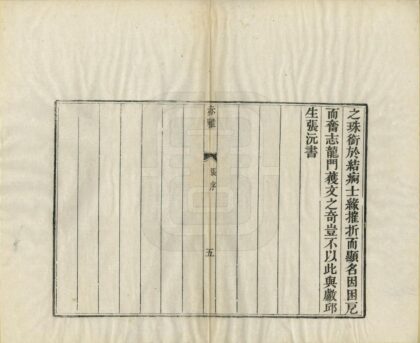 之珠銜於結痾士緣摧折而顯名因困戹
而奮志龍門菨文之奇豈不以此與獻邱
生張沅書
赤雅
張序
五